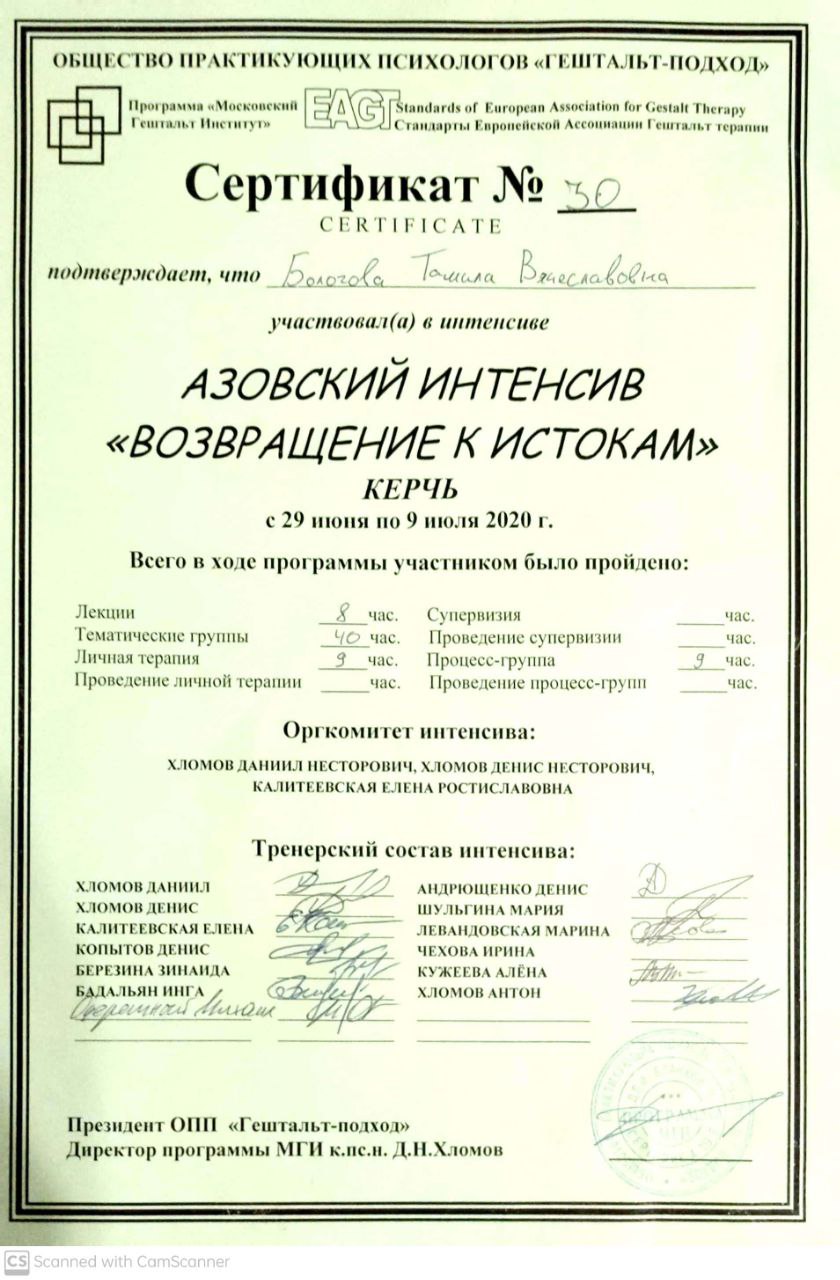 ОБЩЕСТВО ПРАКТИКУЮЩИХ ПСИХОЛОГОВ «ГЕШТАЛЬТ-ПОДХОД»
Программа «Московский
Гештальт Институт»
EAGT
Standards of European Association for Gestalt Therapy
Стандарты Европейской Ассоциации Гештальт терапии
Сертификат № 30
CERTIFICATE
подтверждает, что Бологова Тамила Вячеславовна
участвовал(а) в интенсиве
АЗОВСКИЙ ИНТЕНСИВ
«ВОЗВРАЩЕНИЕ К ИСТОКАМ»
КЕРЧЬ
с 29 июня по 9 июля 2020 г.
Всего в ходе программы участником было пройдено:
Лекции 8 час. Супервизия час.
Тематические группы 40 час. Проведение супервизии час.
Личная терапия 9 час. Процесс-группа 9 час.
Проведение личной терапии час. Проведение процесс-групп час.
Оргкомитет интенсива:
ХЛОМОВ ДАНИИЛ НЕСТОРОВИЧ, ХЛОМОВ ДЕНИС НЕСТОРОВИЧ,
КАЛИТЕЕВСКАЯ ЕЛЕНА РОСТИСЛАВОВНА
Тренерский состав интенсива:
ХЛОМОВ ДАНИИЛ АНДРЮЩЕНКО ДЕНИС
ХЛОМОВ ДЕНИС ШУЛЬГИНА МАРИЯ
КАЛИТЕЕВСКАЯ ЕЛЕНА ЛЕВАНДОВСКАЯ МАРИНА
КОПЫТОВ ДЕНИС ЧЕХОВА ИРИНА
БЕРЕЗИНА ЗИНАИДА КУЖЕЕВА АЛЁНА
БАДАЛЬЯН ИНГА ХЛОМОВ АНТОН
Президент ОПП «Гештальт-подход»
Директор программы МГИ к.пс.н. Д.Н.Хломов
CS Scanned with CamScanner